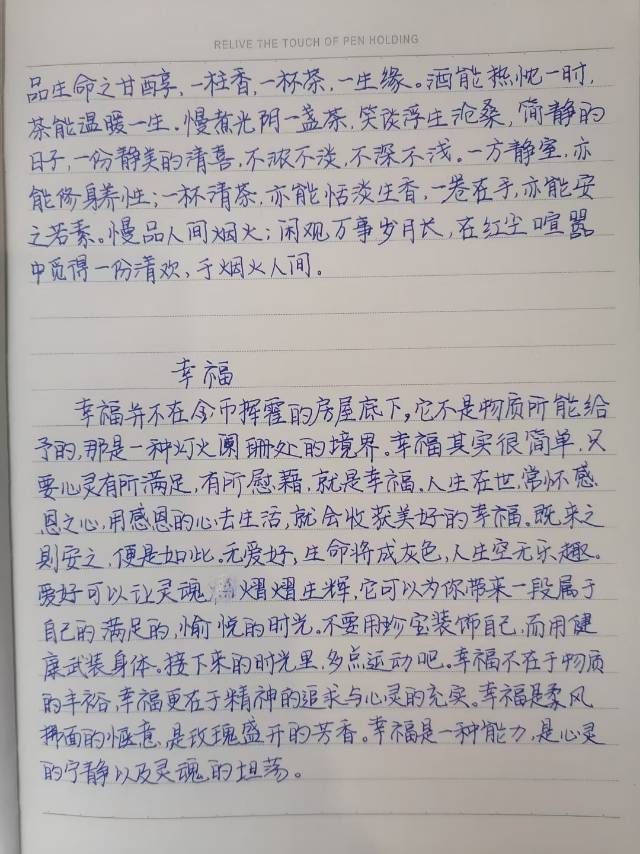 RELIVE THE TOUCH OF PEN HOLDING
品生命之甘醇，一柱香，一杯茶，一生缘。酒能热忱一时，
茶能温暖一生．慢煮光阴一盏茶，笑谈浮生沧桑，简静的
日子，一份静美的清喜，不浓不淡，不深不浅。一方静室，亦
能修身养性；一杯清茶，亦能恬淡生香，一卷在手，亦能安
之若素。慢品人间烟火；闲观万事岁月长，在红尘喧嚣
中觅得一份清欢，于烟火人间。
幸福
幸福并不在金币挥霍的房屋底下，它不是物质所能给
予的，那是一种灯火阑珊处的境界。幸福其实很简单，只
要心灵有所满足，有所慰藉，就是幸福。人生在世，常怀感
恩之心，用感恩的心去生活，就会收获美好的幸福。既来之
则安之，便是如此。无爱好，生命将成灰色，人生空无乐趣。
爱好可以让灵魂熠熠生辉，它可以为你带来一段属于
自己的满足的，愉悦的时光。不要用珍宝装饰自己，而用健
康武装身体。接下来的时光里，多点运动吧。幸福不在于物质
的丰裕，幸福更在于精神的追求与心灵的充实。幸福是柔风
拂面的惬意，是玫瑰盛开的芳香。幸福是一种能力，是心灵
的宁静以及灵魂的坦荡。